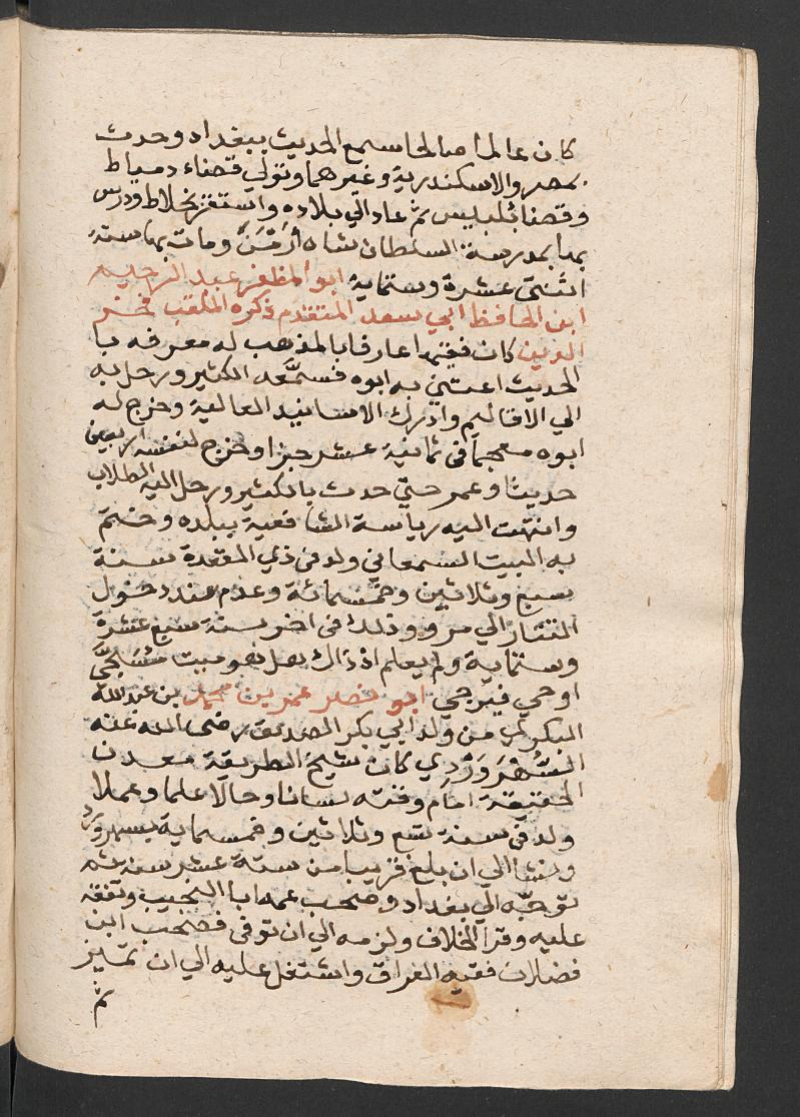 كان عالما صالحا سمع الحديث ببغداد وحدث
بمصر والاسكندرية وغيرهما وتولي قضاء دمياط
وقضا بلبيس ثم عاد الي بلاده واستقر بخلاط ودرس
بها بمدرسة السلطان شاه أرْمَنَ ومات بها سنة
اثنتي عشرة وستماية ابو المظفر عبد الرحيم
ابن الحافظ ابي سعد المتقدم ذكره الملقب فخر
الدين كان فقيها عارفا بالمذهب له معرفه با
لحديث اعتني به ابوه فسمَّعه الكثير ورحل به
الي الاقاليم وادرك الاسانيد العالية وخرج له
ابوه معجما في ثمانية عشر جزا وخرج لنفسه اربعين
حديثا وعمر حتي حدث بالكثير ورحل اليه الطلاب
وانتهت اليه رياسة الشافعية ببلده وختم
به البيت السمعاني ولد في ذي القعدة سنة
سبع وثلاثين وخمسمائة وعدم عند دخول
التتار الي مرو وذلك في اخر سنة سبع عشرة
وستماية ولم يعلم اذ ذاك هل هو ميت
او حي فيرجي ابو نصر عمر بن محمد بن عبد الله
البكري من ولد ابي بكر الصديق رضي الله عنه
السُّهْرَوَرْدِي كان شيخ الطريقة معدن
الحقيقة امام وقته لسانا وحالا علما وعملا
ولد في سنة تسع وثلاثين وخمسماية بسهرورد
ونشا الي ان بلغ قريبا من ستة عشر سنة ثم
توجّه الي بغداد وصحب عمه ابا النجيب وتفقه
عليه وقرا الخلاف ولزمه الي ان توفي فصحب ابن
فضلان فقيه العراق واشتغل عليه الي ان تميز
ثم